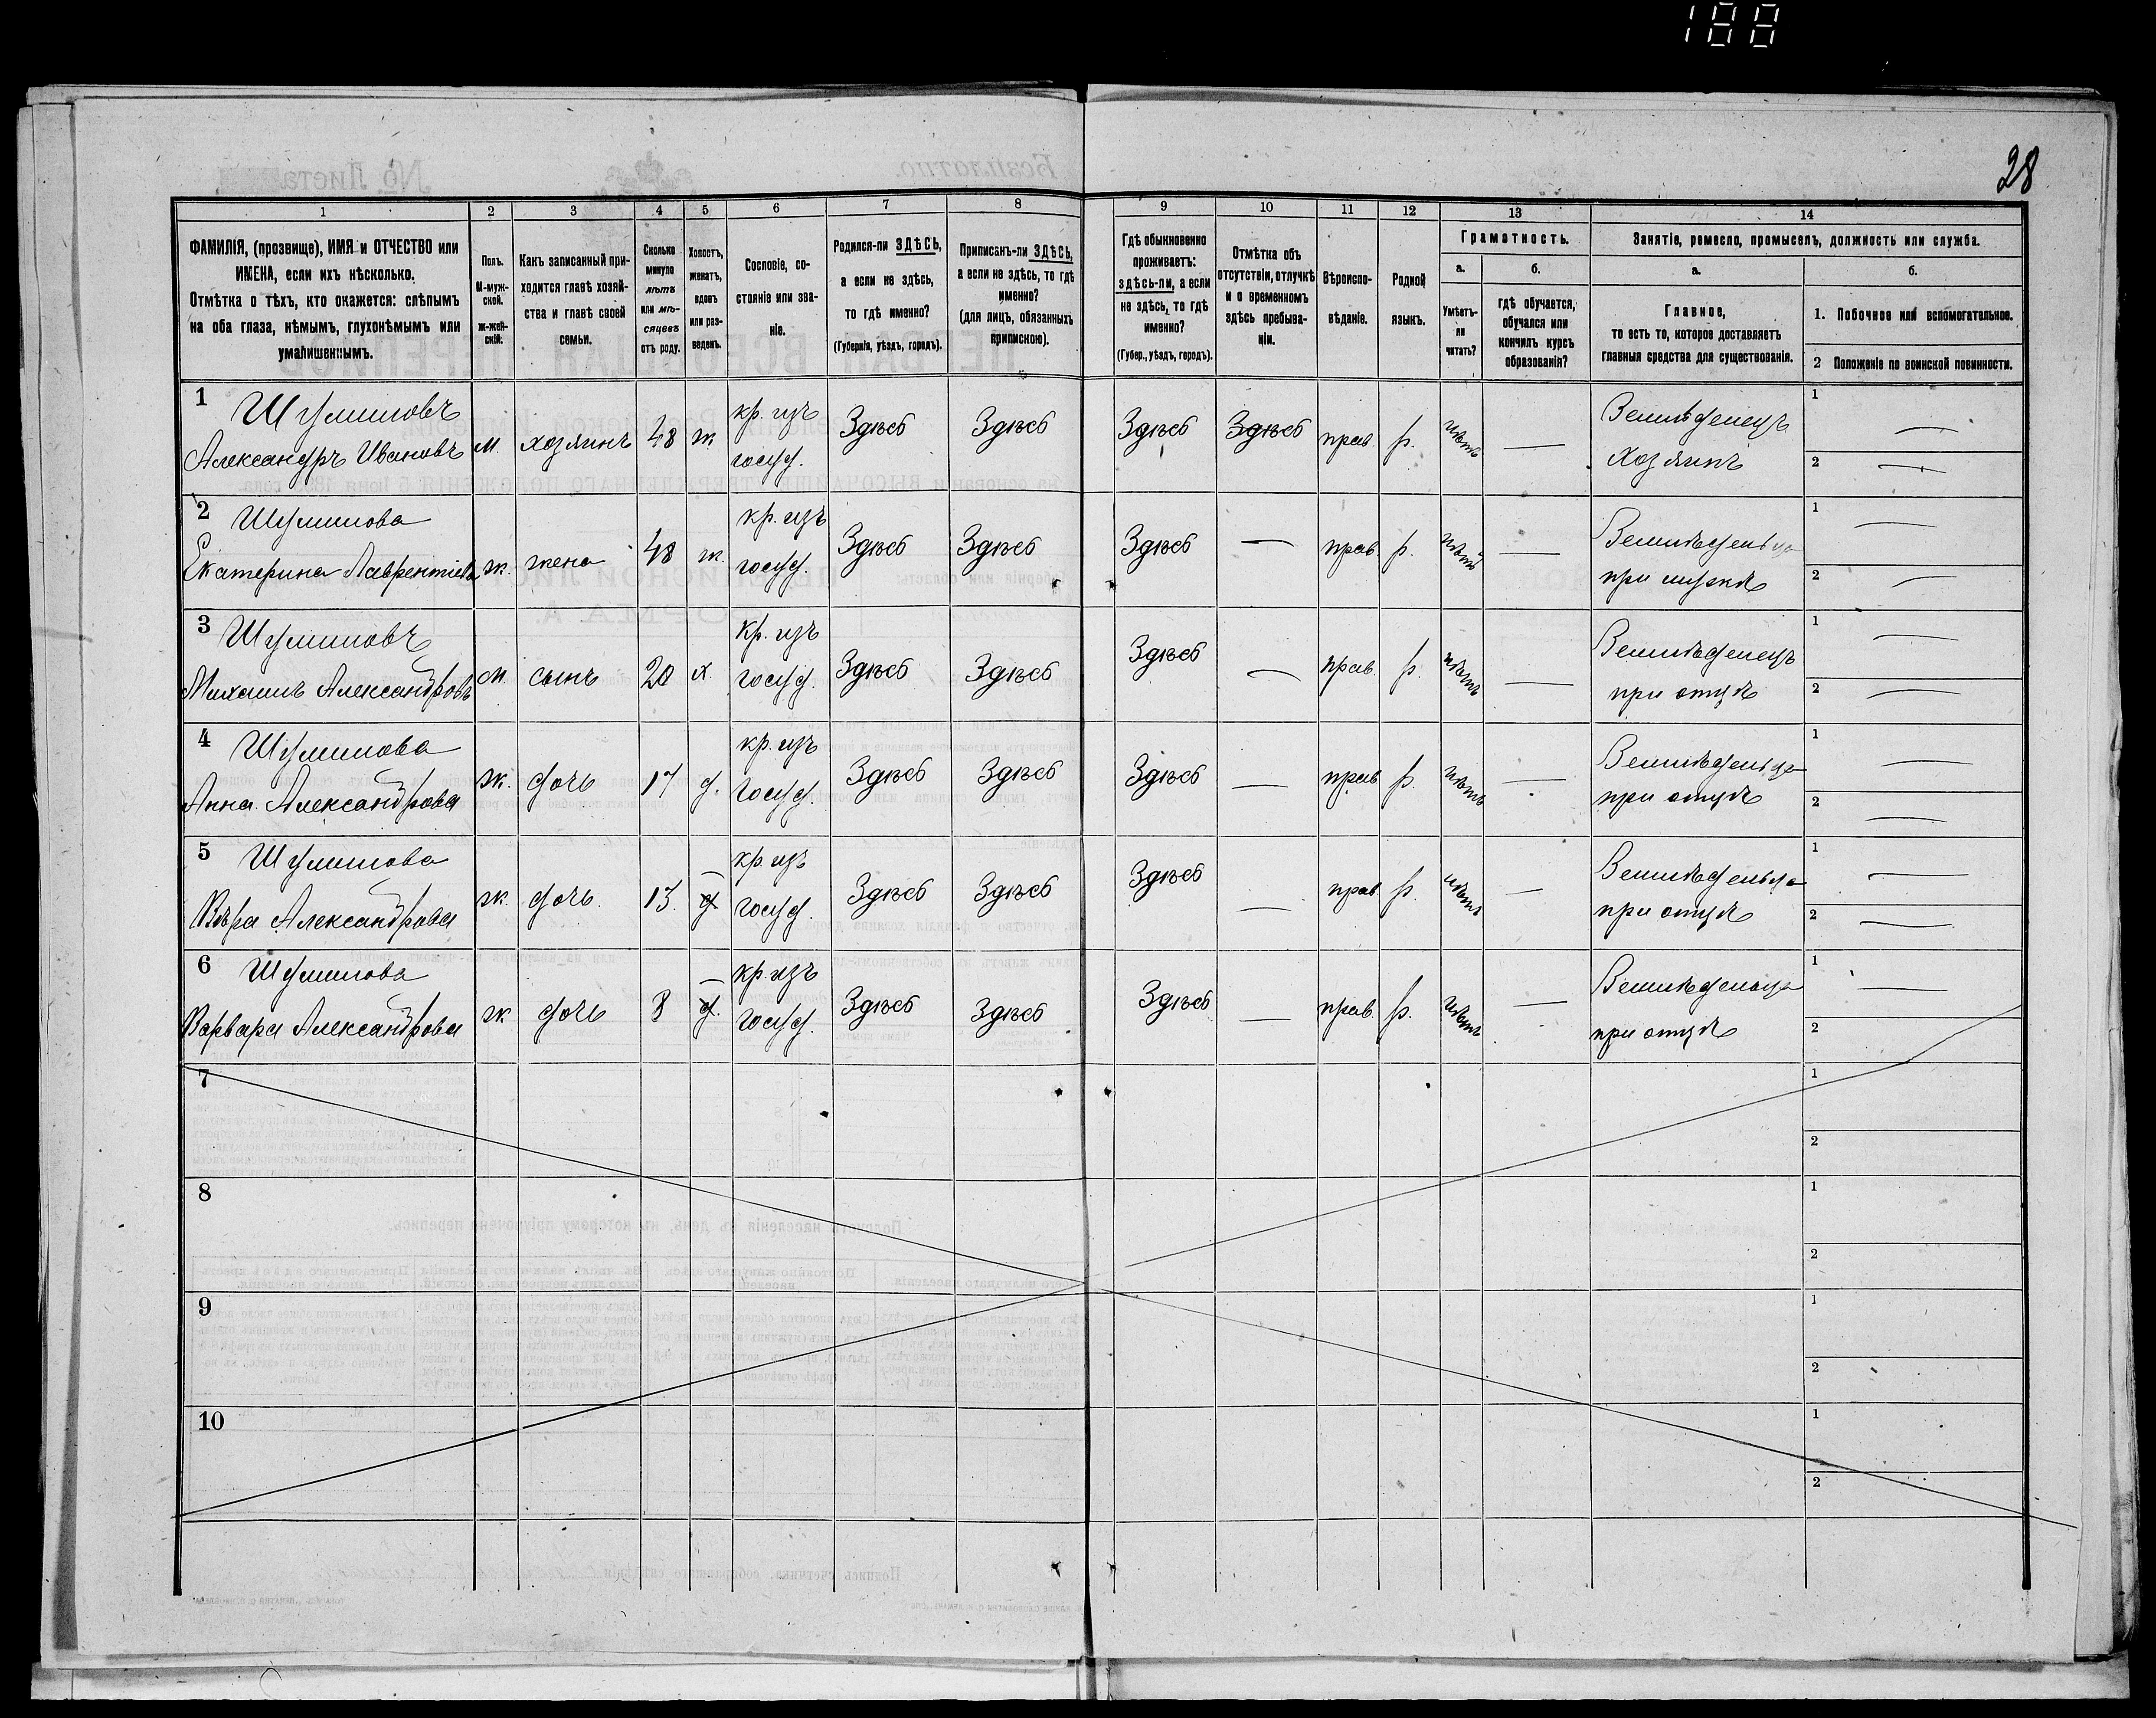 188
28
1
2
3
4
5
6
7
8
9
10
11
12
13
14
ФАМИЛІЯ, (прозвище), ИМЯ и ОТЧЕСТВО или
ИМЕНА, если ихъ нѣсколько.
Отмѣтка о тѣхъ, кто окажется: слѣпымъ
на оба глаза, нѣмымъ, глухонѣмымъ или
умалишеннымъ.
Полъ.
М-муж-
ской.
ж-жен-
скій.
Какъ записанный при-
ходится главѣ хозяй-
ства и главѣ своей
семьи.
Сколько
минуло
лѣтъ
или мѣ-
сяцевъ
отъ роду.
Холостъ,
женатъ,
вдовъ
или раз-
веденъ.
Сословіе, со-
стояніе или зва-
ніе.
Родился-ли ЗДѢСЬ,
а если не здѣсь,
то гдѣ именно?
(Губернія, уѣздъ, городъ).
Приписанъ-ли ЗДѢСЬ,
а если не здѣсь, то гдѣ
именно?
(для лицъ, обязанныхъ
припискою).
Гдѣ обыкновенно
проживаетъ:
здѣсь-ли, а если
не здѣсь, то гдѣ
именно?
(Губер., уѣздъ, городъ).
Отмѣтка объ
отсутствіи, отлучкѣ
и о временномъ
здѣсь пребыва-
ніи.
Вѣроиспо-
вѣданіе.
Родной
языкъ.
Грамотность.
а.
Умѣетъ-
ли
читать?
б.
гдѣ обучается,
обучался или
кончилъ курсъ
образованія?
Занятіе, ремесло, промыселъ, должность или служба.
а.
Главное,
то есть то, которое доставляетъ
главныя средства для существованія.
б.
1. Побочное или вспомогательное.
2 Положеніе по воинской повинности.
1 Шумиловъ
Александръ Ивановъ м. хозяинъ 48 ж. кр. изъ госуд. Здѣсь Здѣсь Здѣсь Здѣсь прав. р. нѣтъ — Земледѣлецъ
хозяинъ
1 —
2 —
2 Шумилова
Екатерина Лаврентіева ж. жена 48 ж. кр. изъ госуд. Здѣсь Здѣсь Здѣсь — прав. р. нѣтъ — Земледѣльца
при мужѣ
1 —
2 —
3 Шумиловъ
Михаилъ Александровъ м. сынъ 20 х. кр. изъ госуд. Здѣсь Здѣсь Здѣсь — прав. р. нѣтъ — Земледѣлецъ
при отцѣ
1 —
2 —
4 Шумилова
Анна Александрова ж. дочь 17 д. кр. изъ госуд. Здѣсь Здѣсь Здѣсь — прав. р. нѣтъ — Земледѣльца
при отцѣ
1 —
2 —
5 Шумилова
Вѣра Александрова ж. дочь 13. д. кр. изъ госуд. Здѣсь Здѣсь Здѣсь — прав. р. нѣтъ — Земледѣльца
при отцѣ
1 —
2 —
6 Шумилова
Варвара Александрова ж. дочь 8 д. кр. изъ госуд. Здѣсь Здѣсь Здѣсь — прав. р. нѣтъ — Земледѣльца
при отцѣ
1 —
2
7
1
2
8
1
2
9
1
2
10
1
2